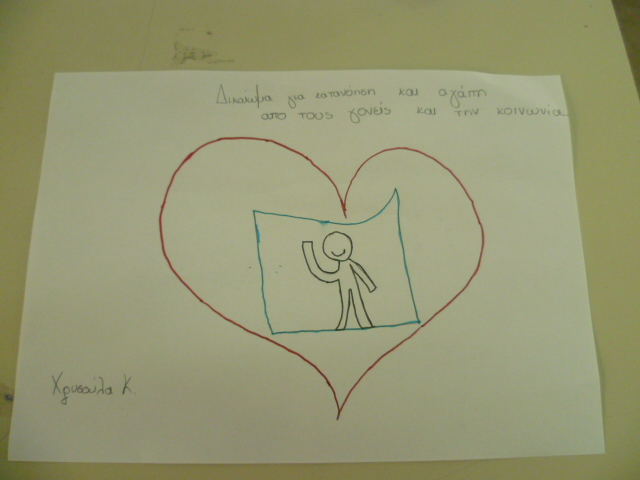 Δικαιωμα για κατανόηση και αγάπη
απο τους γονείς και την κοινωνία
Χρυσούλα Κ.